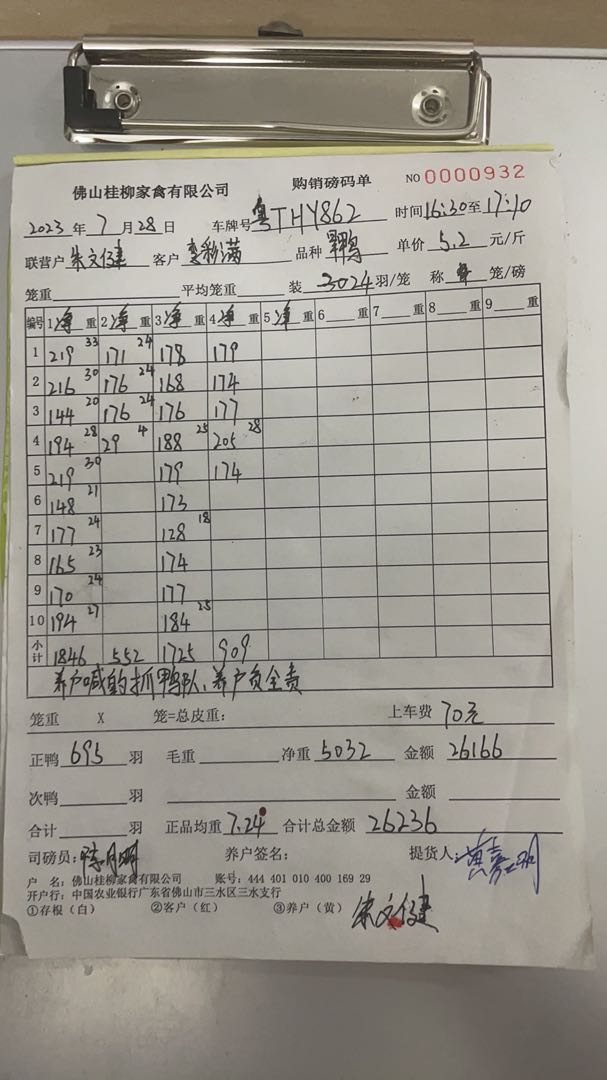 佛山桂柳家禽有限公司 购销磅码单 NO 0000932
2023 年 7 月 28 日 车牌号 粤THY862 时间 16:30 至 17:10
联营户 朱文健 客户 满 品种 鸭 单价 5.2 元/斤
笼重 平均笼重 装 3024 羽/笼 称 笼/磅
编号 1 净 重 2 净 重 3 净 重 4 净 重 5 净 重 6 重 7 重 8 重 9 重
1 219 33 171 24 178 179
2 216 30 176 24 168 174
3 144 20 176 24 176 177
4 194 28 29 4 188 25 205 28
5 219 30 179 174
6 148 21 173
7 177 24 128 18
8 165 23 174
9 170 24 177
10 194 27 184 25
小计 1846 552 1725 909
养户喊的抓鸭队、养户负全责
笼重 X 笼=总皮重: 上车费 70元
正鸭 695 羽 毛重 净重 5032 金额 26166
次鸭 羽 金额
合计 羽 正品均重 7.24 合计总金额 26236
司磅员: 养户签名: 提货人:
户 名: 佛山桂柳家禽有限公司 账号: 444 401 010 400 169 29
开户行: 中国农业银行广东省佛山市三水区三水支行
①存根（白） ②客户（红） ③养户（黄） 朱文健